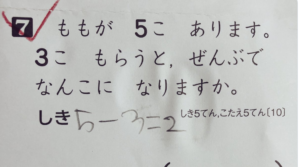 7 ももが 5こ あります。
3こ もらうと, ぜんぶで
なんこに なりますか。
しき5-3=2 しき5てん,こたえ5てん〔10〕